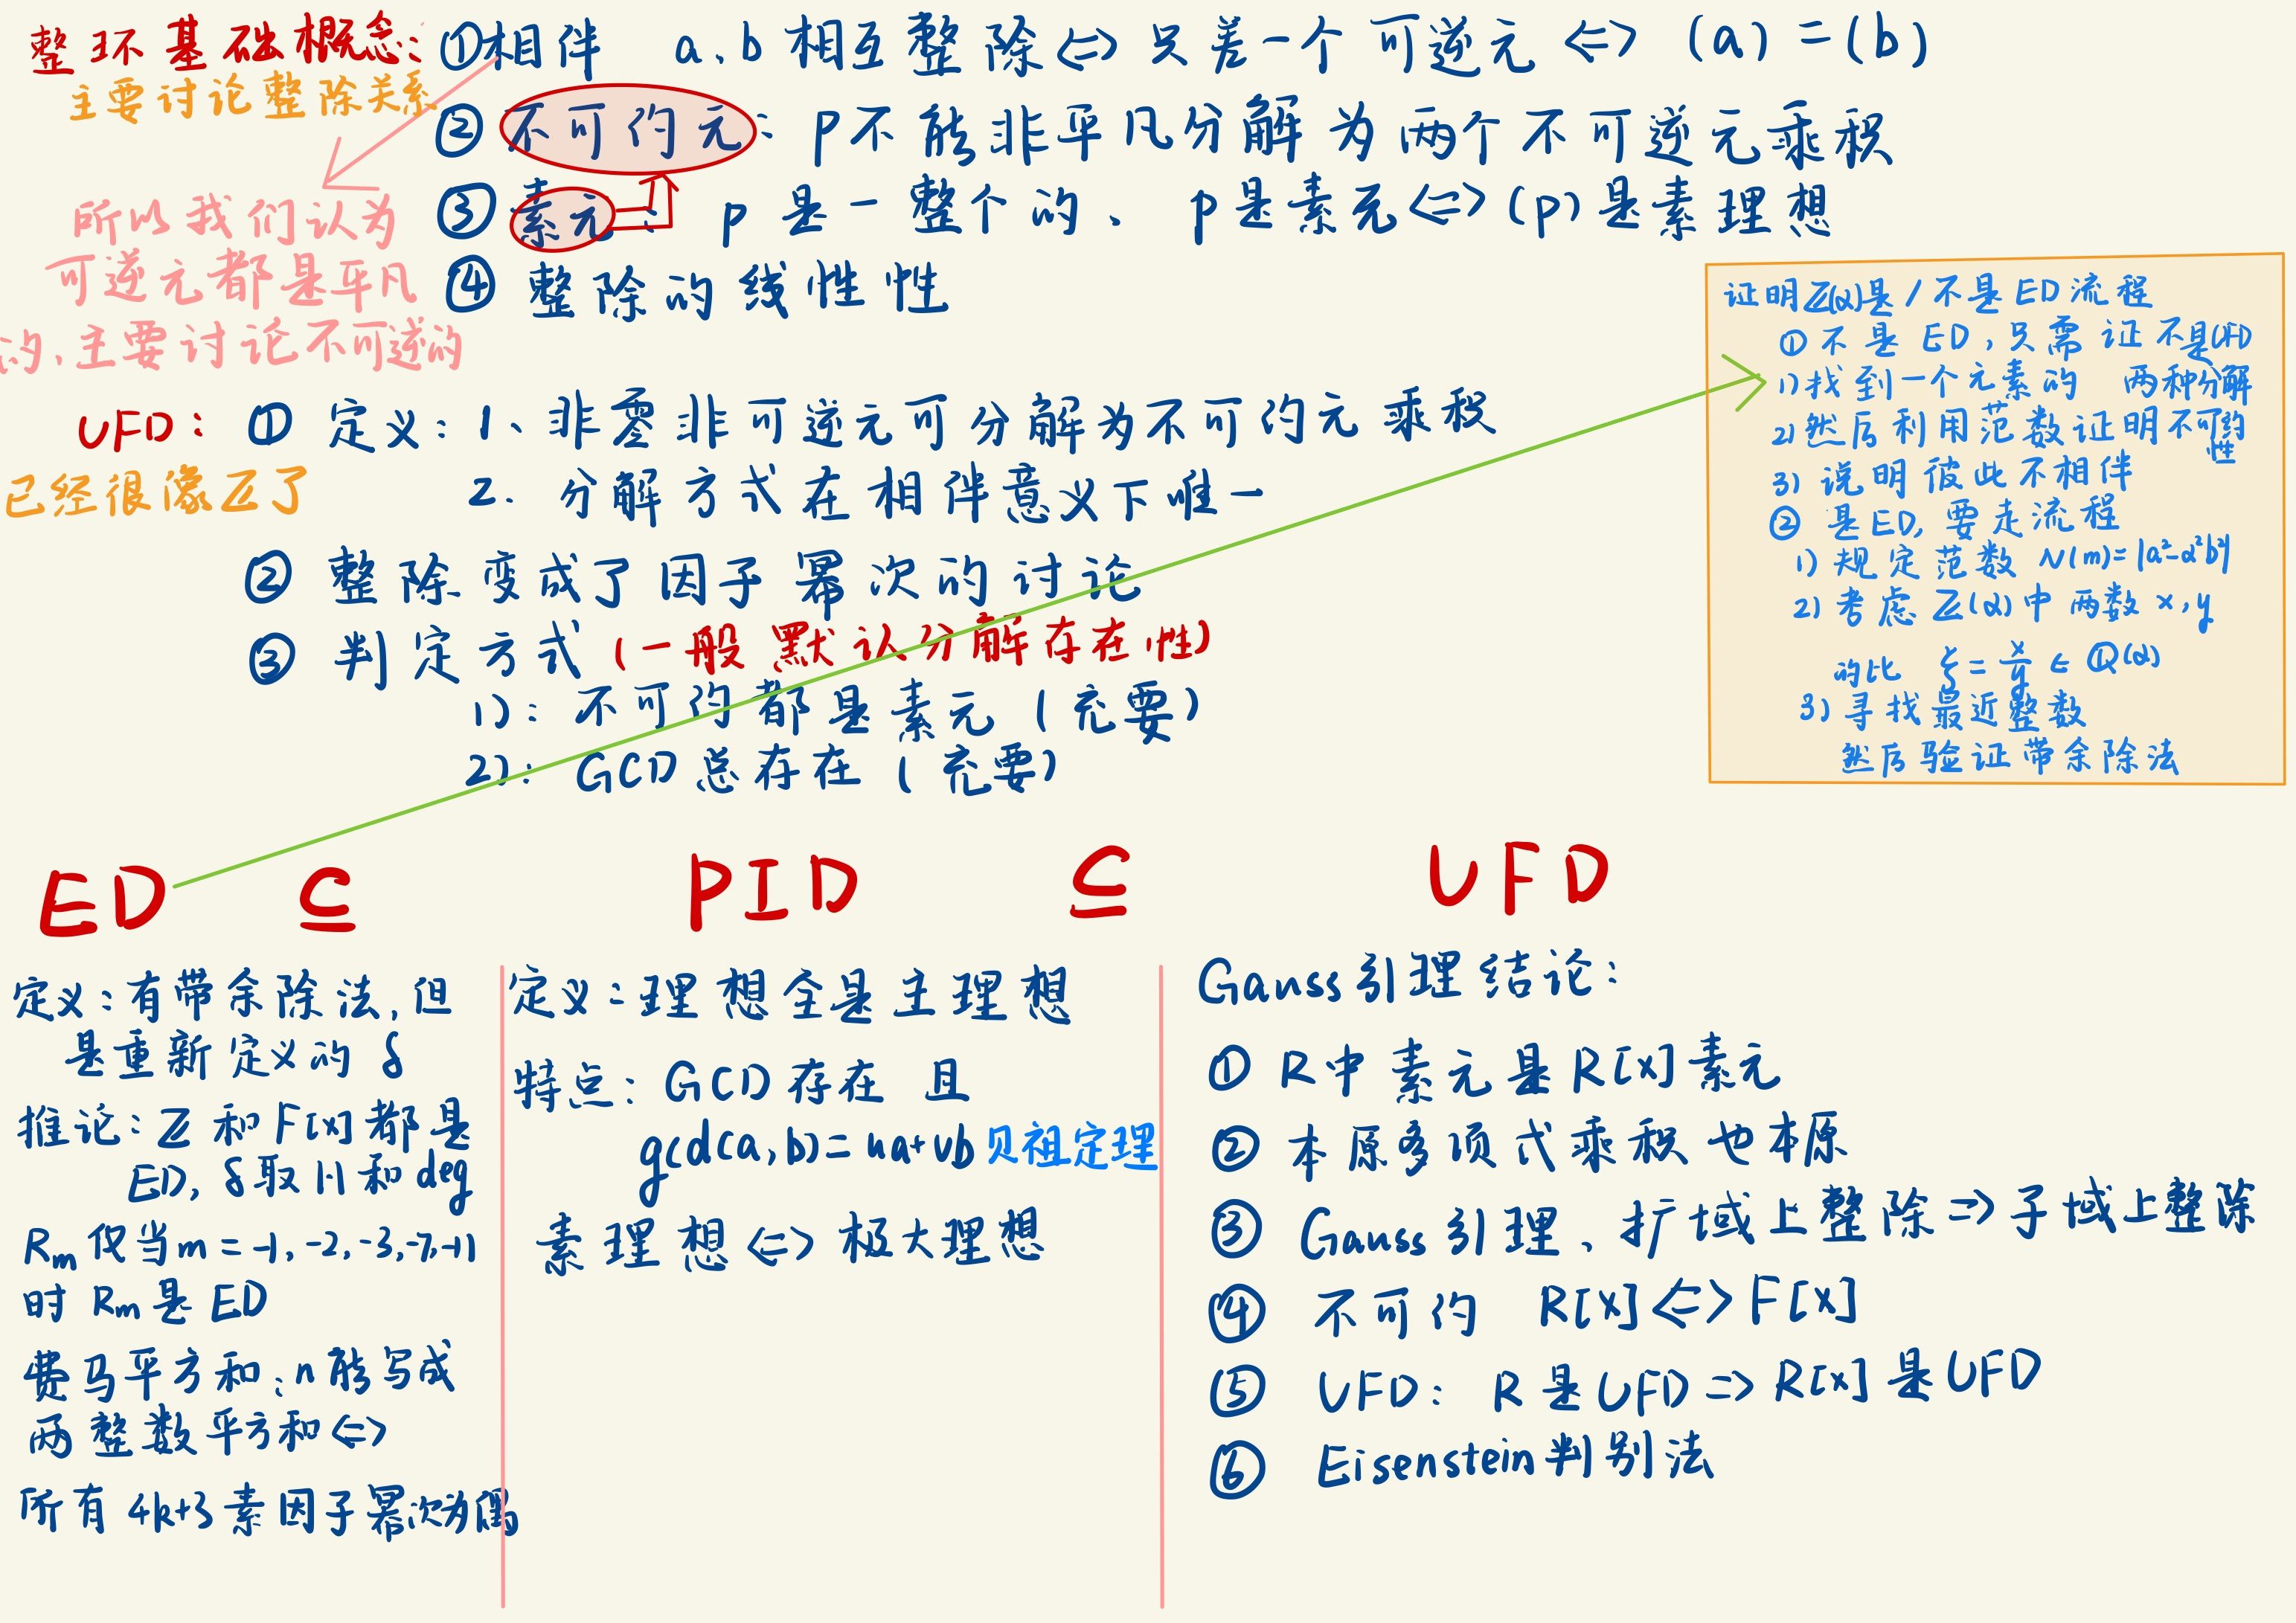 整环基础概念:
主要讨论整除关系
①相伴 a、b 相互整除⇔只差一个可逆元⇔ (a)=(b)
②不可约元: p不能非平凡分解为两个不可逆元乘积
③素元: p是一整个的、p是素元⇔(p)是素理想
④整除的线性性
所以我们认为
可逆元都是平凡
的,主要讨论不可逆的
证明Z(α)是/不是ED流程
①不是ED,只需证不是UFD
1)找到一个元素的 两种分解
2)然后利用范数证明不可约性
3)说明彼此不相伴
②是ED,要走流程
1)规定范数 N(m)=|a²-α²b²|
2)考虑Z(α)中两数x,y
的比 ξ=x/y∈Q(α)
3)寻找最近整数
然后验证带余除法
UFD:
已经很像Z了
①定义:1、非零非可逆元可分解为不可约元乘积
2. 分解方式在相伴意义下唯一
②整除变成了因子幂次的讨论
③判定方式(一般默认分解存在性)
1): 不可约都是素元(充要)
2): GCD总存在(充要)
ED ⊆ PID ⊆ UFD
定义:有带余除法,但
是重新定义的 δ
推论:Z和F[x]都是
ED, δ取||和deg
Rm仅当m=-1,-2,-3,-7,-11
时 Rm是ED
费马平方和:n能写成
两整数平方和⇔
所有4k+3素因子幂次为偶
定义:理想全是主理想
特点:GCD存在 且
gcd(a,b)=ua+vb 贝祖定理
素理想⇔极大理想
Gauss引理结论:
①R中素元是R[x]素元
②本原多项式乘积也本原
③Gauss引理、扩域上整除⇒子域上整除
④不可约 R[x]⇔F[x]
⑤UFD: R是UFD⇒R[x]是UFD
⑥Eisenstein判别法